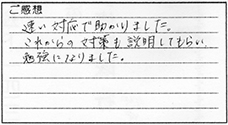 ご感想
速い対応で助かりました。
これからの対策も説明してもらい
勉強になりました。